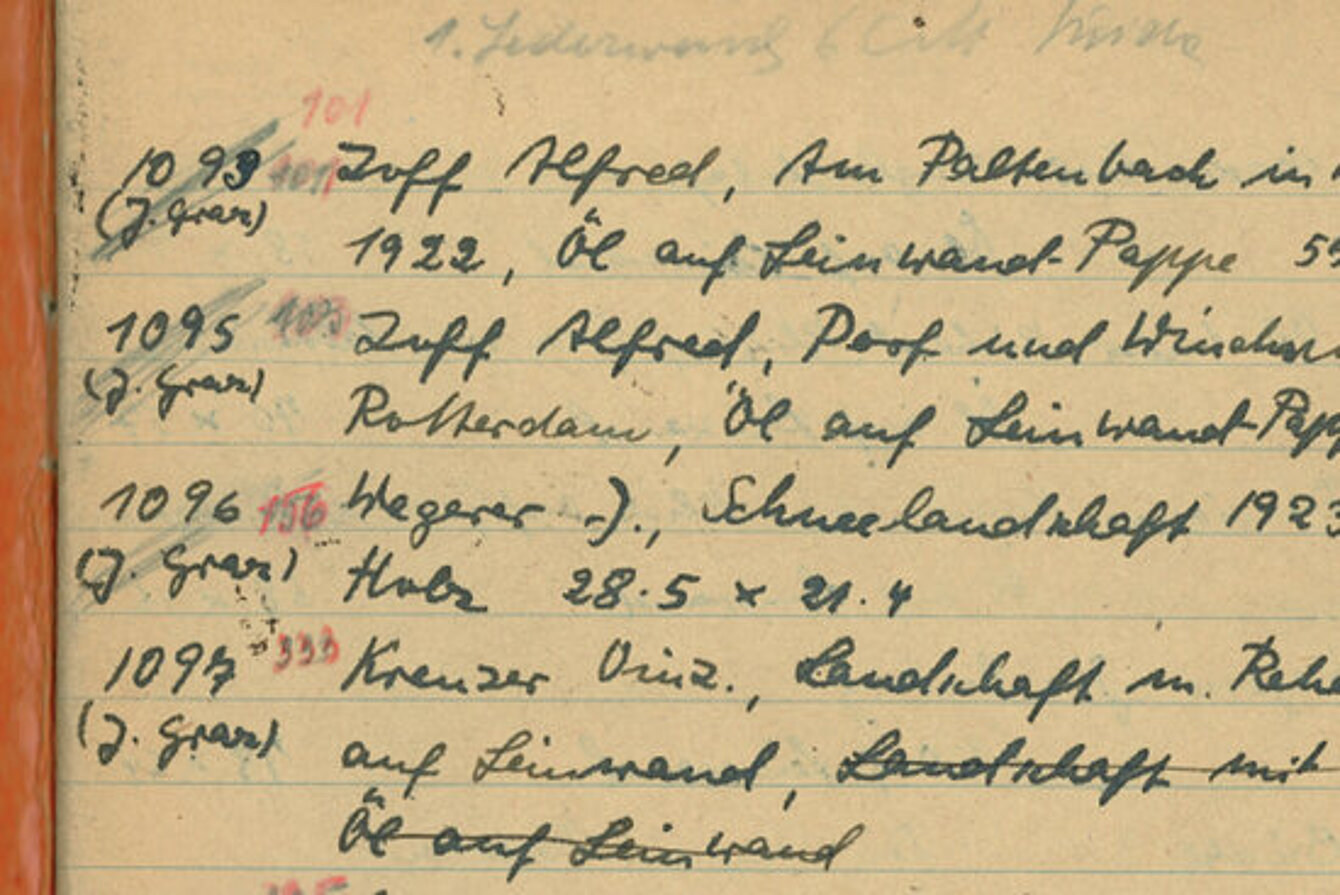 101
1093 101 Zoff Alfred, Am Paltenbach in
(J. Graz) 1922, Öl auf Leinwand-Pappe 5
1095 103 Zoff Alfred, Dorf und
(J. Graz) Rotterdam, Öl auf Leinwand-Papp
1096 156 Wegerer J., Schneelandschaft 1923
(J. Graz) Holz 28.5 x 21.4
1097 333 Kreuzer Vinz., Landschaft m. Rehe
(J. Graz) auf Leinwand, Landschaft mit
Öl auf Leinwand